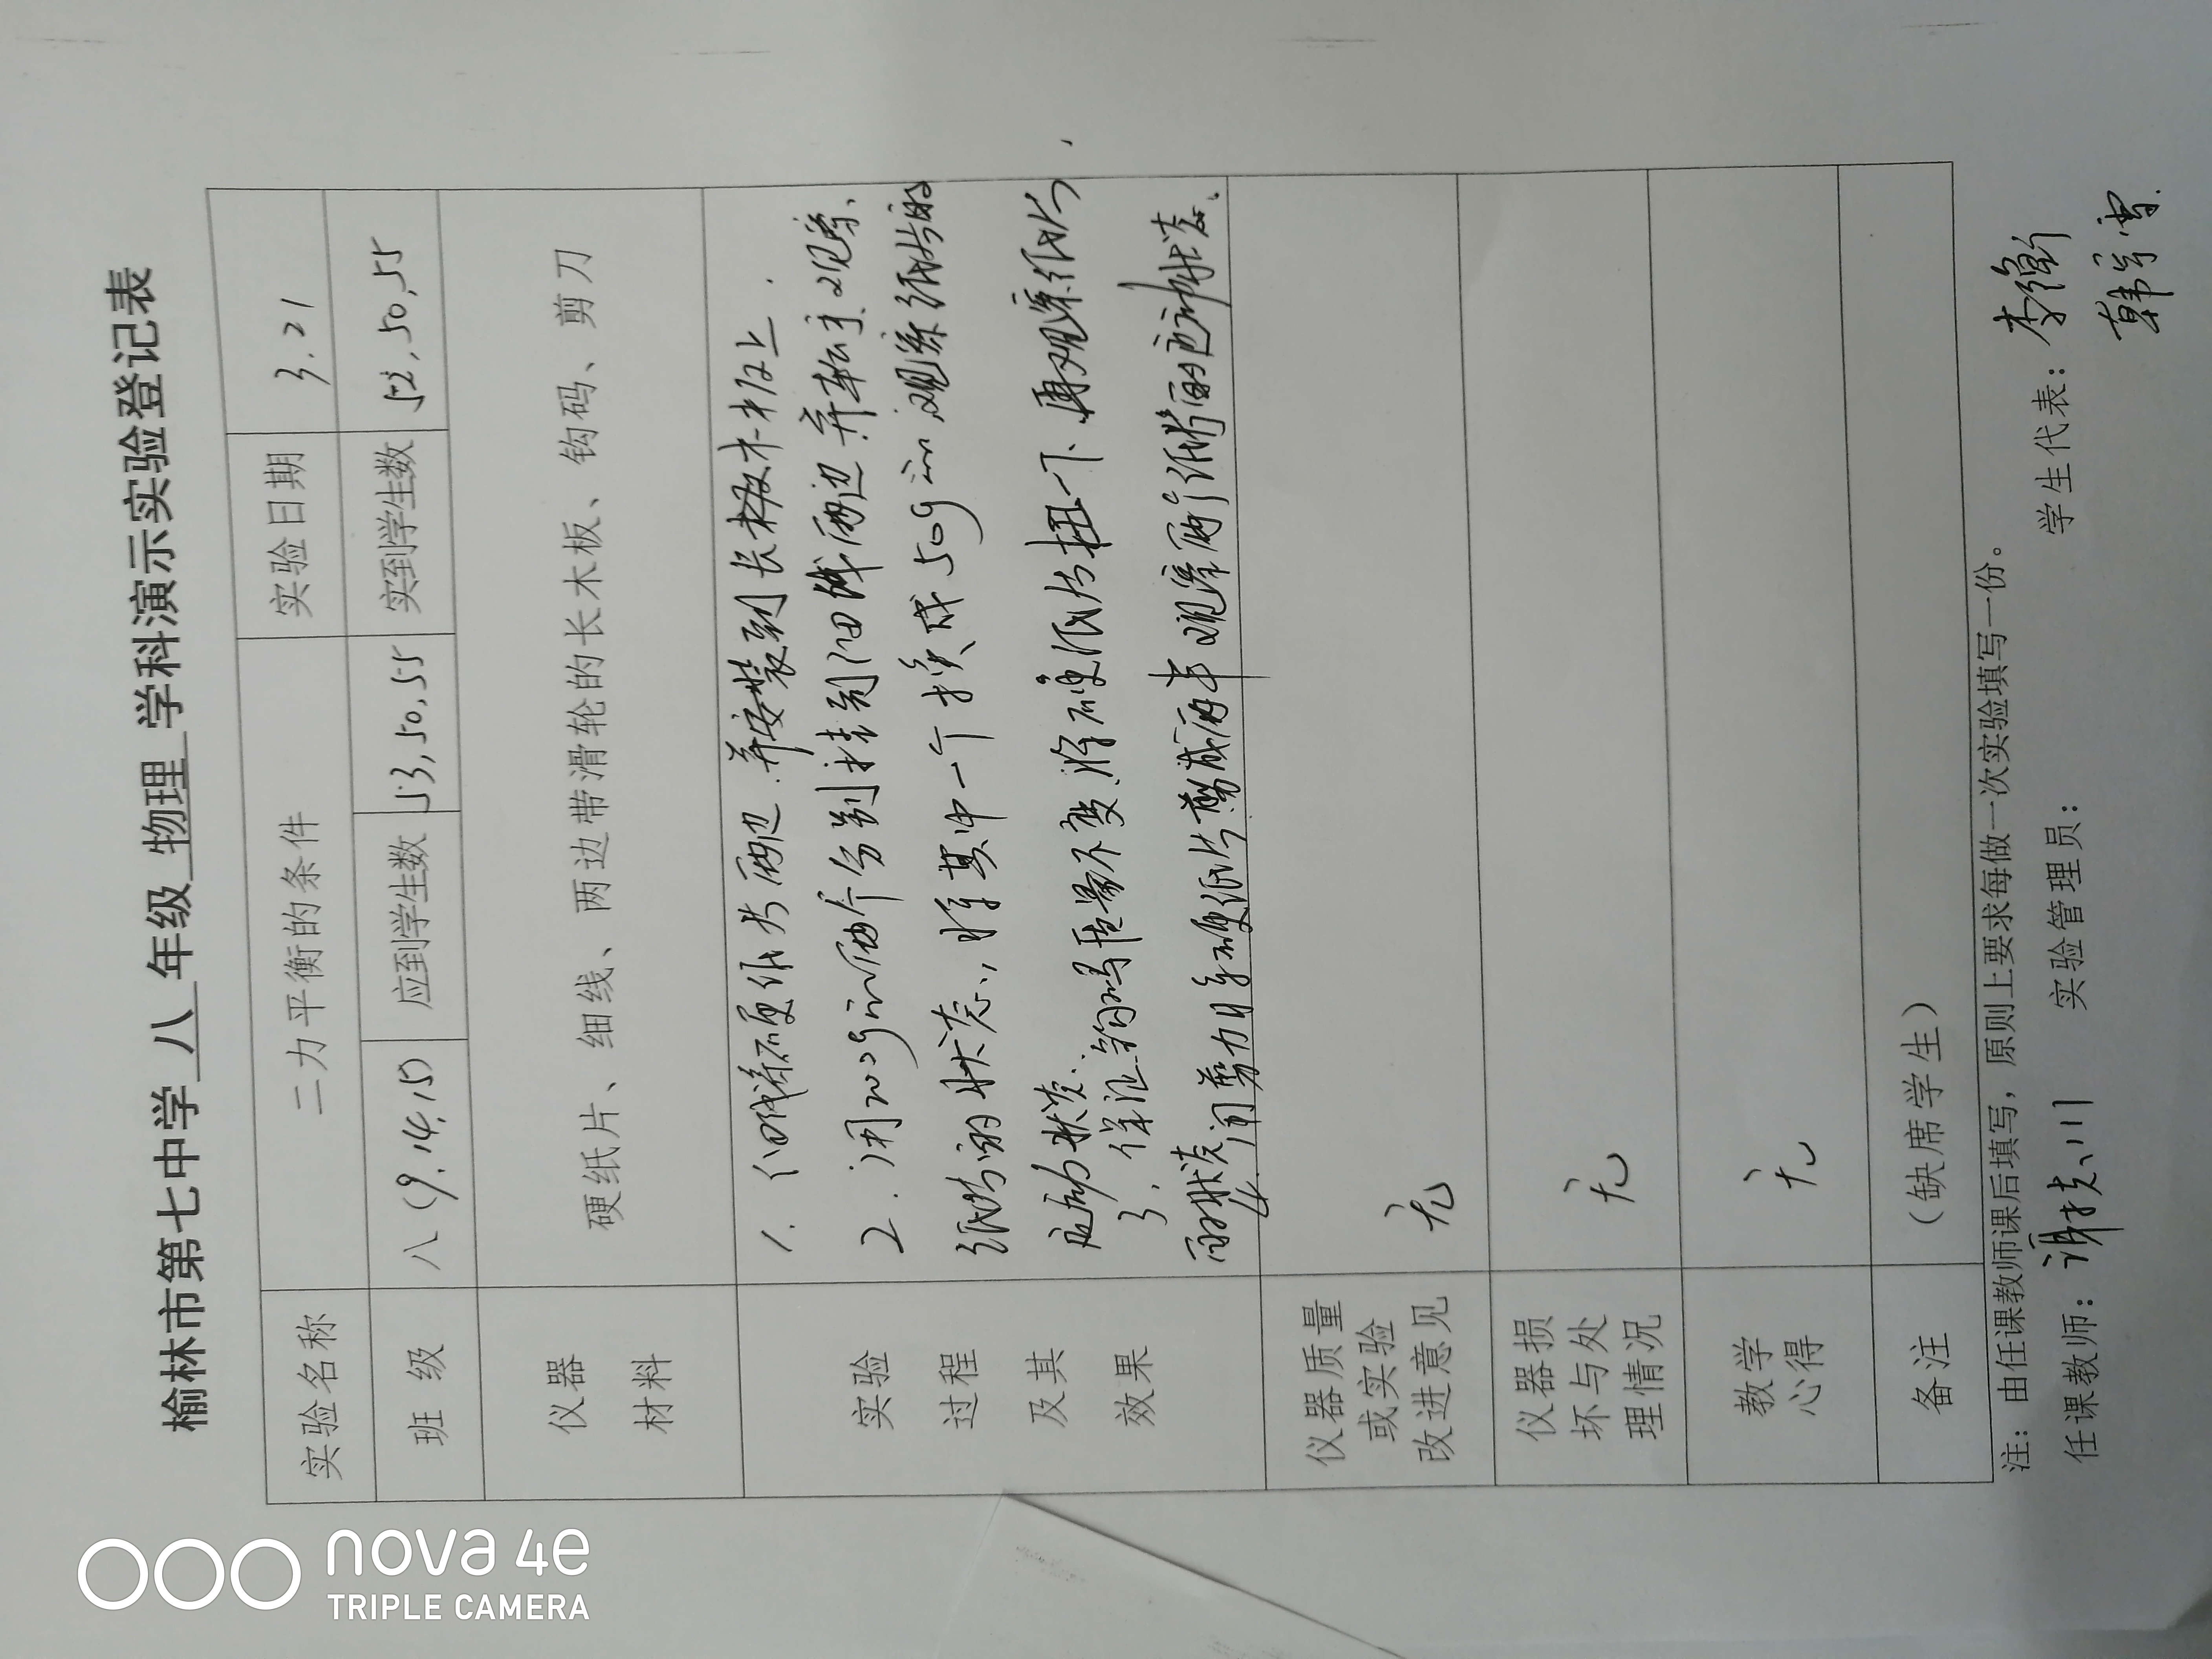 榆林市第七中学 八 年级 物理 学科演示实验登记表
实验名称 二力平衡的条件 实验日期 3.21
班级 八(9.14,15) 应到学生数 53,50,55 实到学生数 52,50,55
仪器
材料
硬纸片、细线、两边带滑轮的长木板、钩码、剪刀
实验
过程
及其
效果
1. 细线系硬纸片两边.并安装到长木板上.
2.用200g 两个分别挂到细线两边.并松手.观察.
纸片的状态,将其中一个换成50g 观察纸片的
运动状态.
3.保证钩码质量不变.将硬纸片扭一下.再观察纸片
的状态
4.用剪刀将硬纸片剪成两半观察两个纸片的运动状态.
仪器质量
或实验
改进意见
无
仪器损
坏与处
理情况
无
教学
心得
无
备注 (缺席学生)
注:由任课教师课后填写,原则上要求每做一次实验填写一份。
任课教师: 谢 川 实验管理员: 学生代表: 李
韩 雪.
nova 4e
TRIPLE CAMERA